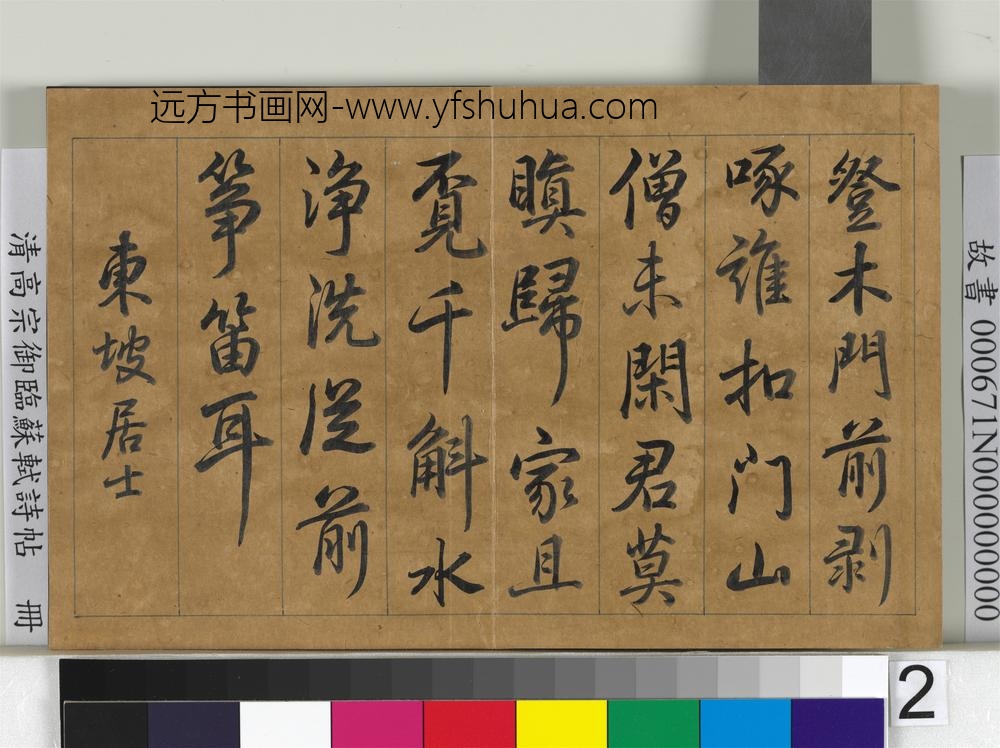 远方书画网-www.yfshuhua.com
登木門前剥
啄誰扣门山
僧未閑君莫
瞋歸家且
覔千斛水
浄洗從前
箏笛耳
東坡居士
故書 000671N000000000
清高宗御臨蘇軾詩帖 冊
2